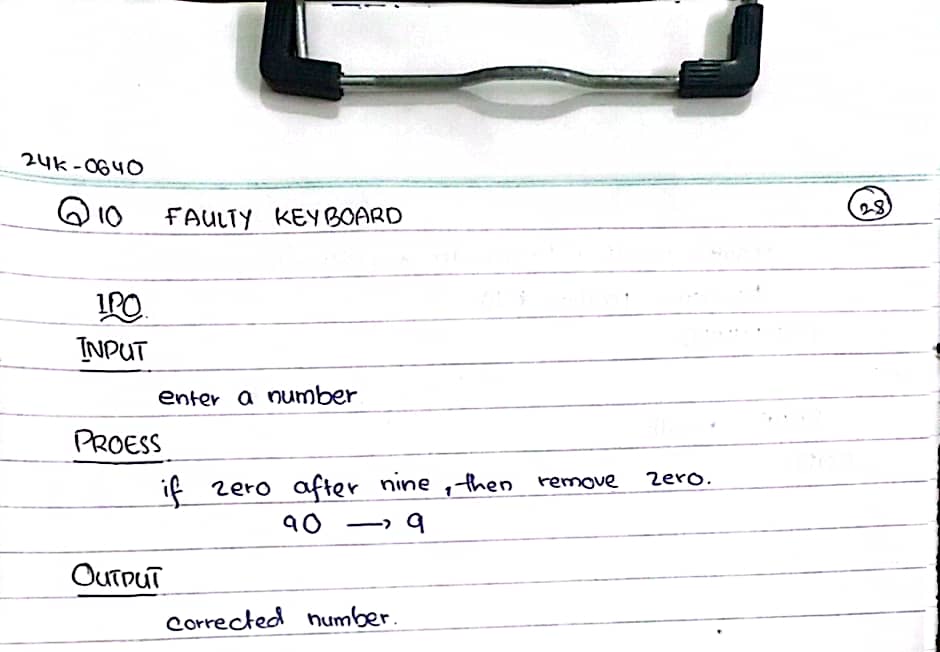 24K-0640
Q 10 FAULTY KEYBOARD 28
IPO
INPUT
enter a number
PROESS
if zero after nine, then remove zero.
90 → 9
OUTPUT
corrected number.